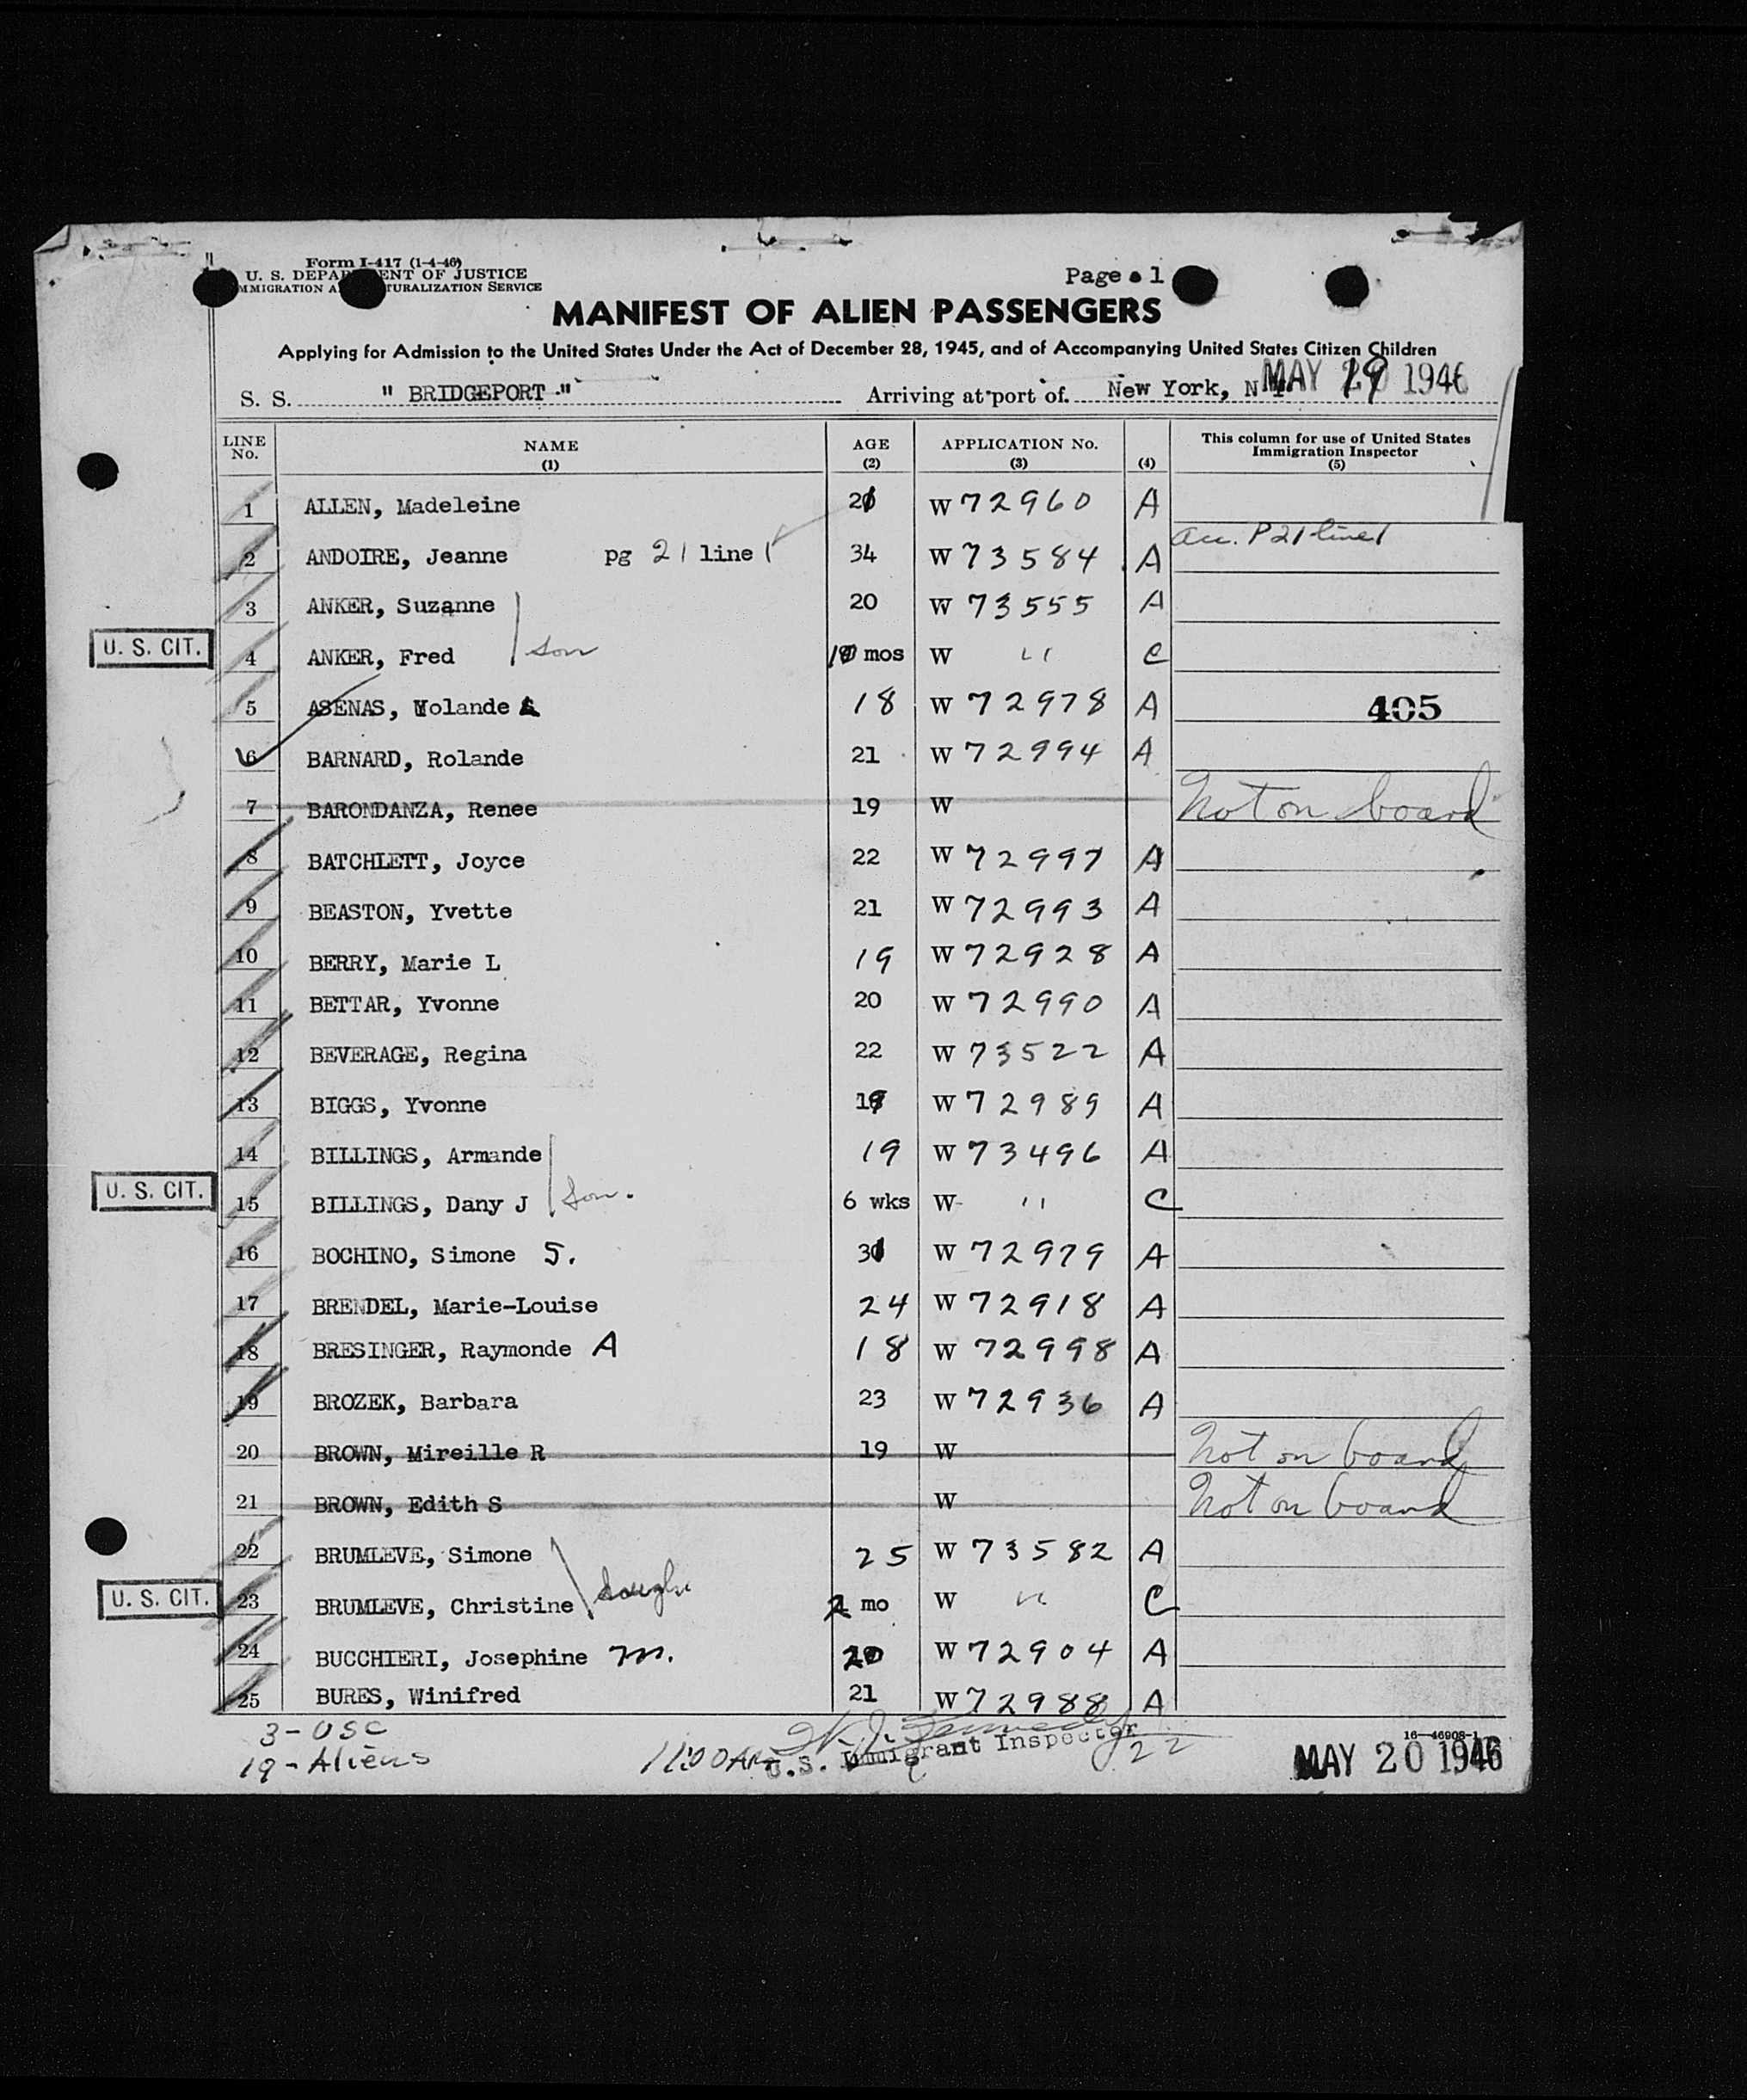 Form I-417 (1-4-46)
U. S. DEPA ENT OF JUSTICE
MMIGRATION A TURALIZATION SERVICE
Page 1
MANIFEST OF ALIEN PASSENGERS
Applying for Admission to the United States Under the Act of December 28, 1945, and of Accompanying United States Citizen Children
S. S. " BRIDGEPORT " Arriving at port of New York, N Y MAY 19 1946
LINE No. NAME (1) AGE (2) APPLICATION No. (3) (4) This column for use of United States Immigration Inspector (5)
1 ALLEN, Madeleine W 72960 A
acc. P 21 line 1
2 ANDOIRE, Jeanne pg 21 line 1 34 W 73584 A
3 ANKER, Suzanne 20 W 73555 A
U. S. CIT. 4 ANKER, Fred son mos W " C
5 ASENAS, Yolande 18 W 72978 A 405
6 BARNARD, Rolande 21 W 72994 A
7 BARONDANZA, Renee 19 W Not on board
8 BATCHLETT, Joyce 22 W 72997 A
9 BEASTON, Yvette 21 W 72993 A
10 BERRY, Marie L 19 W 72928 A
11 BETTAR, Yvonne 20 W 72990 A
12 BEVERAGE, Regina 22 W 73522 A
13 BIGGS, Yvonne W 72989 A
14 BILLINGS, Armande 19 W 73496 A
U. S. CIT. 15 BILLINGS, Dany J son. 6 wks W " C
16 BOCHINO, Simone S. W 72979 A
17 BRENDEL, Marie-Louise 24 W 72918 A
18 BRESINGER, Raymonde A 18 W 72998 A
19 BROZEK, Barbara 23 W 72936 A
20 BROWN, Mireille R 19 W Not on board
21 BROWN, Edith S W Not on board
22 BRUMLEVE, Simone 25 W 73582 A
U. S. CIT. 23 BRUMLEVE, Christine 2 mo W " C
24 BUCCHIERI, Josephine M. 20 W 72904 A
25 BURES, Winifred 21 W 72988 A
3 - USC
19 - Aliens
11:00 AM
U.S. Immigrant Inspector
22
16-46908-1
MAY 20 1946